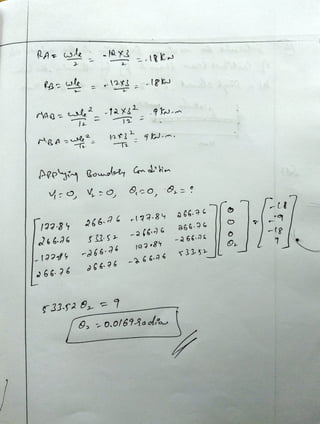 RA = wle/2 = -12×3/2 = -18 kN
RB = wle/2 = -12×3/2 = -18 kN
MAB = wle²/12 = -12×3²/12 = 9 kN.m
MBA = wle²/12 = 12×3²/12 = 9 kN.m.
Applying Boundary Condition
V₁ = 0, V₂ = 0, θ₁ = 0, θ₂ = ?
[177.84 266.76 -177.84 266.76] [0] [-18]
[266.76 533.52 -266.76 266.76] [0] = [-9]
[-177.84 -266.76 177.84 -266.76] [0] [-18]
[266.76 266.76 -266.76 533.52] [θ₂] [9]
533.52 θ₂ = 9
θ₂ = 0.0169 Radian